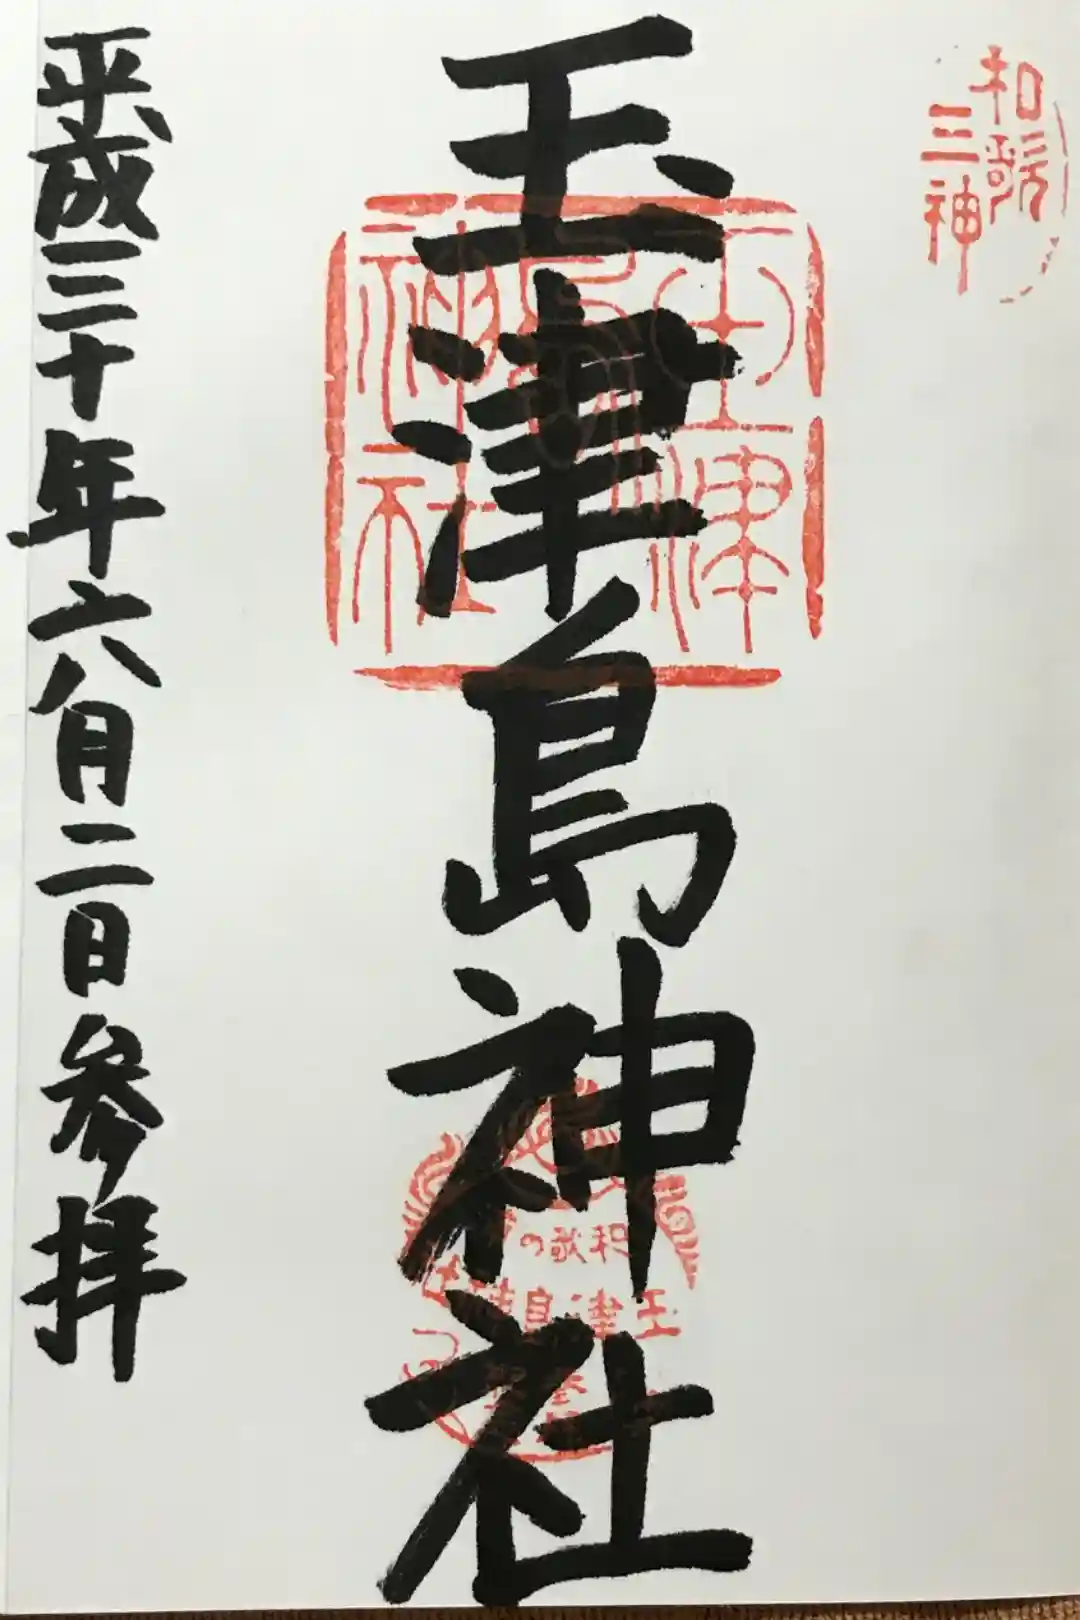 和歌
三神
玉津
島
神社
玉津島神社
和歌の
玉津島
平成三十年六月二日参拝